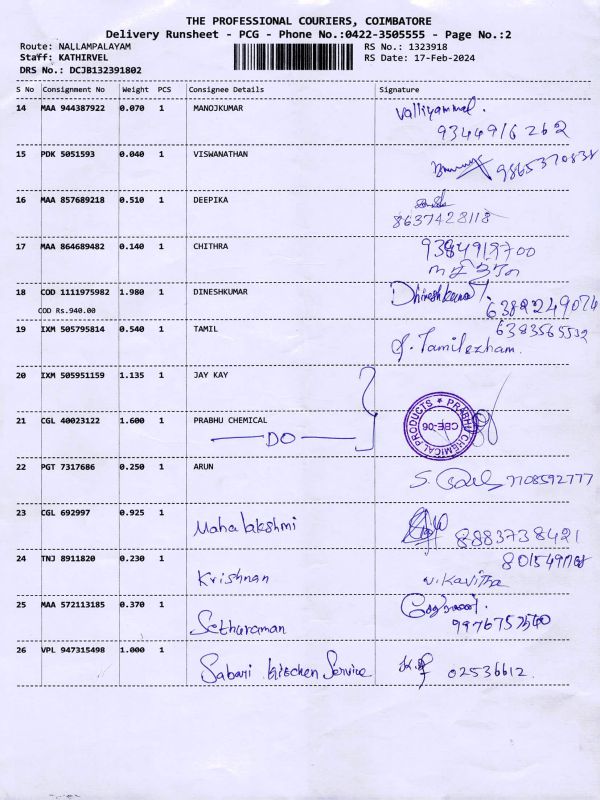 THE PROFESSIONAL COURIERS, COIMBATORE
Delivery Runsheet - PCG - Phone No.:0422-3505555 - Page No.:2
Route: NALLAMPALAYAM
RS No.: 1323918
Staff: KATHIRVEL
RS Date: 17-Feb-2024
DRS No.: DCJB132391802
S No Consignment No Weight PCS Consignee Details Signature
14 MAA 944387922 0.070 1 MANOJKUMAR Valliyammal.
9344916262
15 PDK 5051593 0.040 1 VISWANATHAN 9865370838
16 MAA 857689218 0.510 1 DEEPIKA
8637428118
17 MAA 864689482 0.140 1 CHITHRA
18 COD 1111975982 1.980 1 DINESHKUMAR Dhineshkumar
COD Rs.940.00 6382249074
19 IXM 505795814 0.540 1 TAMIL 6383565532
Tamilezham.
20 IXM 505951159 1.135 1 JAY KAY
21 CGL 40023122 1.600 1 PRABHU CHEMICAL
DO
PRABHU CHEMICAL PRODUCTS
CBE-06
22 PGT 7317686 0.250 1 ARUN 7708592777
23 CGL 692997 0.925 1
Mahalakshmi 8883738421
24 TNJ 8911820 0.230 1
Krishnan V. Kavitha
25 MAA 572113185 0.370 1
Sethuraman
26 VPL 947315498 1.000 1
Sabari kitchen Service 02536612.